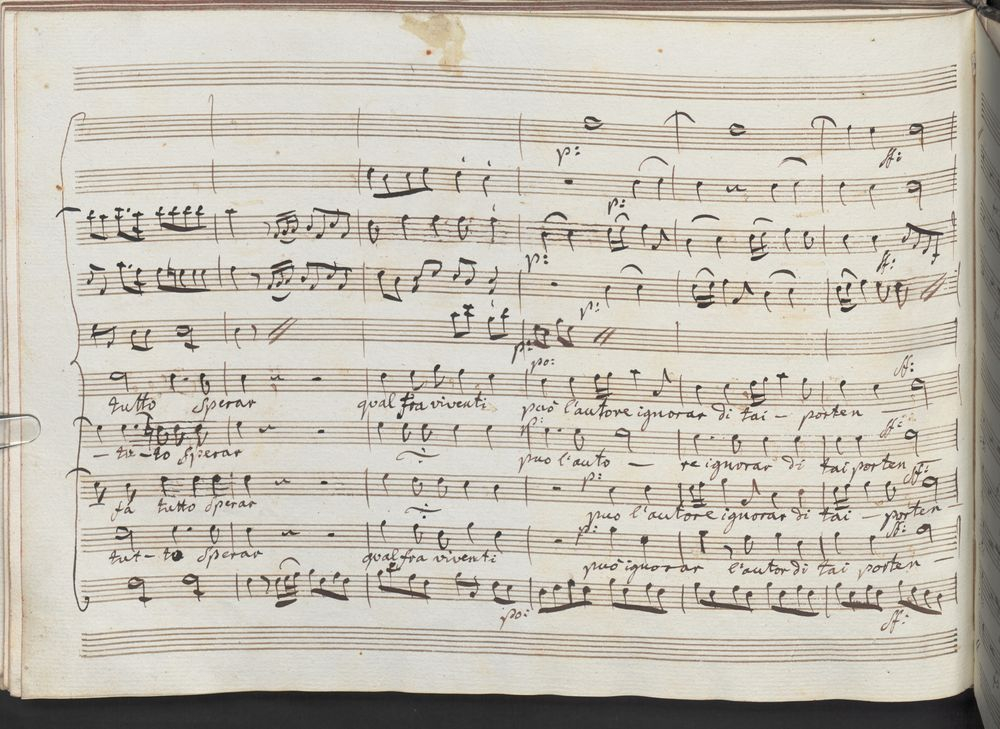 p:
ff:
p:
p:
ff:
p:
p:
po:
ff:
tutto Sperar qual fra viventi può l'autore ignorar di tai - porten
p:
ff:
- tu-to Sperar può l'auto - re ignorar di tai porten
p:
ff:
fà tutto Sperar può l'autore ignorar di tai - porten -
p:
ff:
tut-to Sperar qual fra viventi può ignorar l'autor di tai porten -
po:
ff: